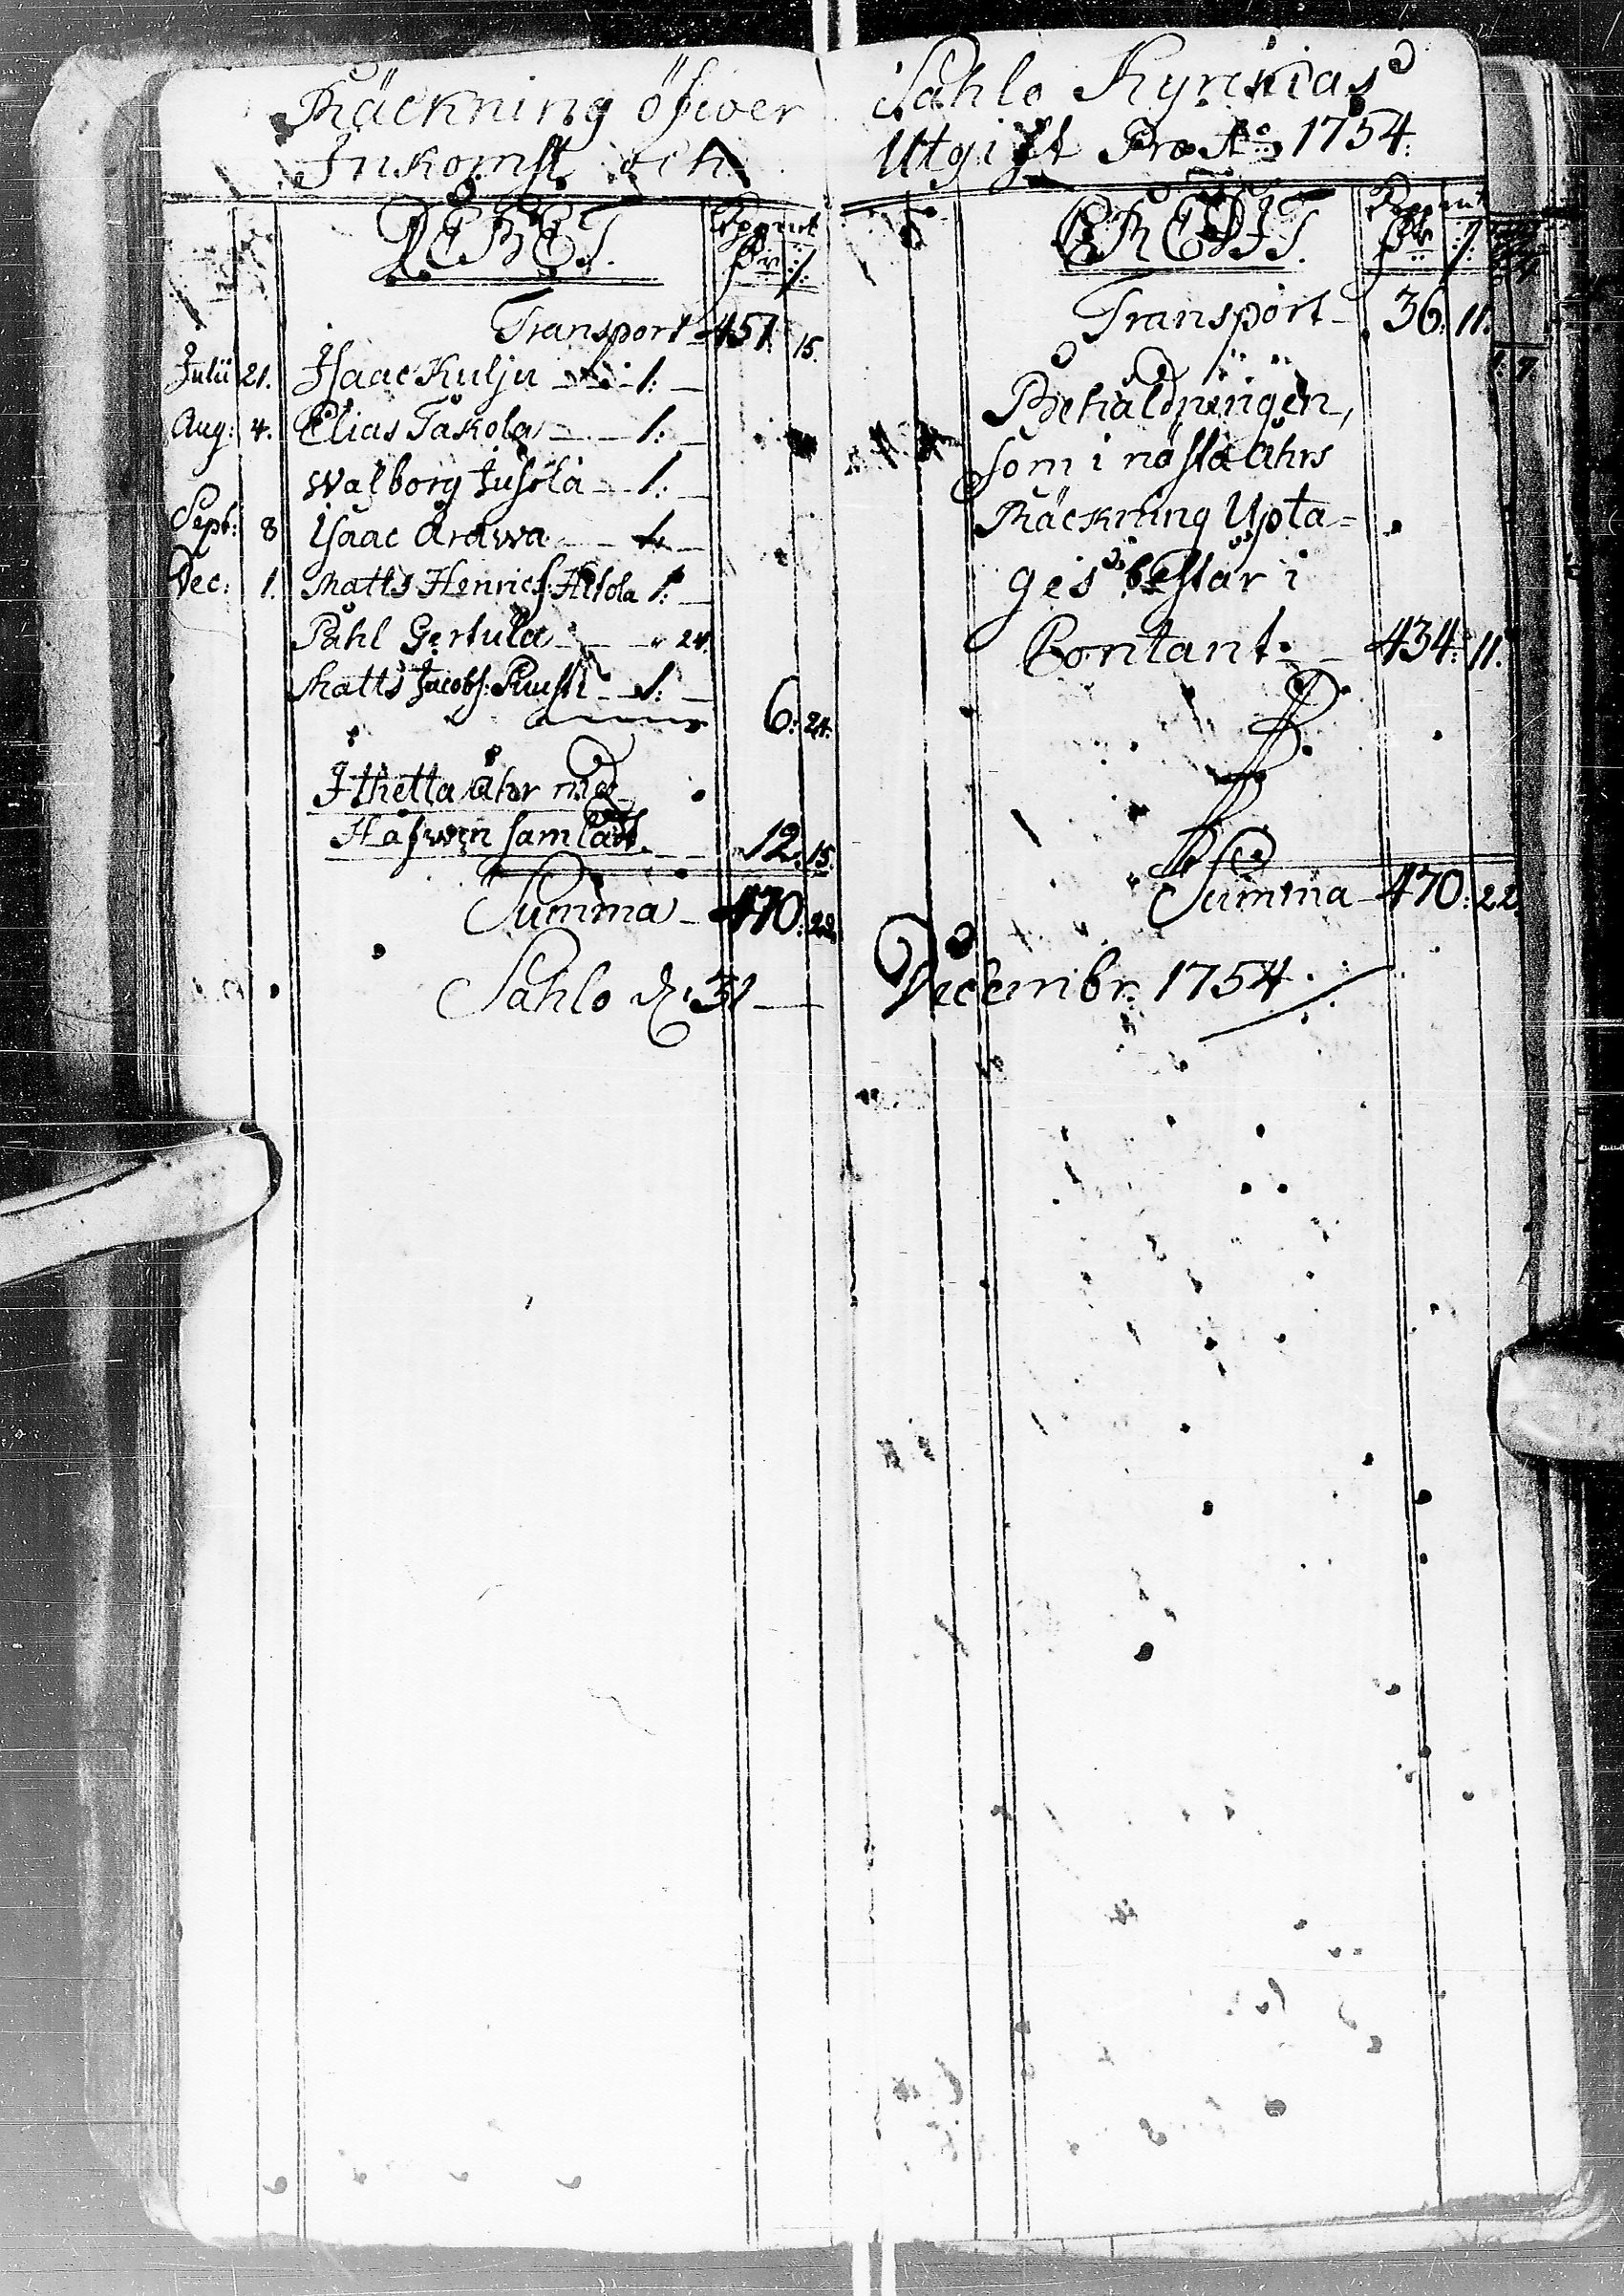 Räckning öfwer Sahlo Kyrckias
Inkomst och Utgift Pro A:o 1754.
DEBET.
Transport 451. 15.
Julii 21. Isaac Kulju 1:
Aug: 4. Elias Takola 1:
Walborg Jusola 1:
Sept: 8 Isaac Arawa 1:
Dec: 1. Matts Henrics: Alsola 1:
Påhl Gertula 24.
Matts Jacobs: Ruusti 1:
6: 24.
I thetta åhr med
Håfwen samlatt 12. 15.
Summa 470: 22.
CREDIT.
Transport 36: 11.
Behåldningen,
som i nästa åhrs
Räckning Upta=
ges består i
Contant 434: 11.
Summa 470: 22.
Sahlo d. 31 Decembr. 1754.